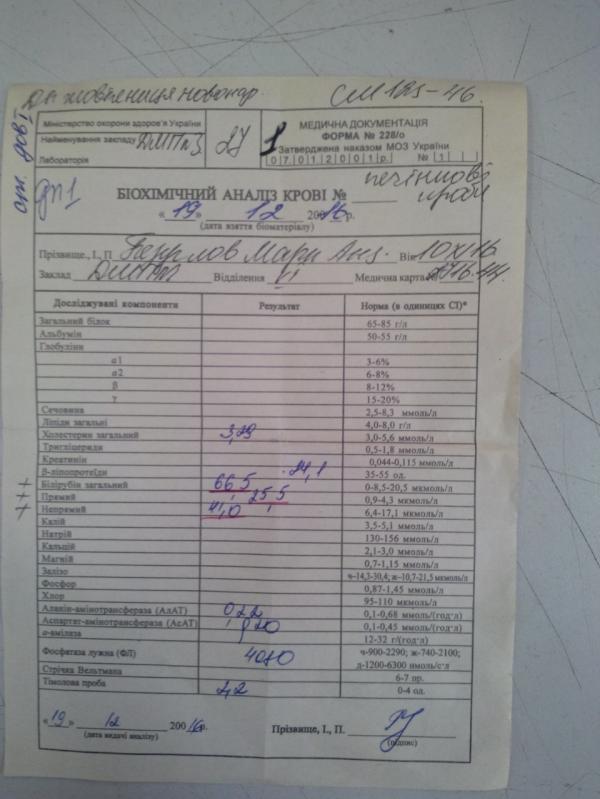 СМ 125-46.
Міністерство охорони здоров'я України
Найменування закладу ДМПЗ
Лабораторія
27
МЕДИЧНА ДОКУМЕНТАЦІЯ
ФОРМА № 228/о
Затверджена наказом МОЗ України
07.01.2001р. № 1
БІОХІМІЧНИЙ АНАЛІЗ КРОВІ №
печінкові проби
«19» 12 200 16 р.
(дата взяття біоматеріалу)
Прізвище, І., П. Марк Вік 10 XI 16
Заклад Відділення Медична карта №
Досліджувані компоненти Результат Норма (в одиницях СІ)*
Загальний білок 65-85 г/л
Альбумін 50-55 г/л
Глобуліни
α1 3-6%
α2 6-8%
β 8-12%
γ 15-20%
Сечовина 2,5-8,3 ммоль/л
Ліпіди загальні 4,0-8,0 г/л
Холестерин загальний 3,29 3,0-5,6 ммоль/л
Тригліцериди 0,5-1,8 ммоль/л
Креатинін 0,044-0,115 ммоль/л
β-ліпопротеїди 35-55 од.
Білірубін загальний 66,5 0-8,5-20,5 мкмоль/л
Прямий 25,5 0,9-4,3 мкмоль/л
Непрямий 41,0 6,4-17,1 мкмоль/л
Калій 3,5-5,1 ммоль/л
Натрій 130-156 ммоль/л
Кальцій 2,1-3,0 ммоль/л
Магній 0,7-1,15 ммоль/л
Залізо ч-14,3-30,4; ж-10,7-21,5 мкмоль/л
Фосфор 0,87-1,45 ммоль/л
Хлор 95-110 ммоль/л
Аланін-амінотрансфераза (АлАТ) 0,22 0,1-0,68 ммоль/(год·л)
Аспартат-амінотрансфераза (АсАТ) 0,20 0,1-0,45 ммоль/(год·л)
α-амілаза 12-32 г/(год·л)
Фосфатаза лужна (ФЛ) 4080 ч-900-2290; ж-740-2100;
д-1200-6300 нмоль/с·л
Стрічка Вельтмана 6-7 пр.
Тимолова проба 2,2 0-4 од.
«19» 12 200 16 р. Прізвище, І., П.
(дата видачі аналізу) (підпис)
+++